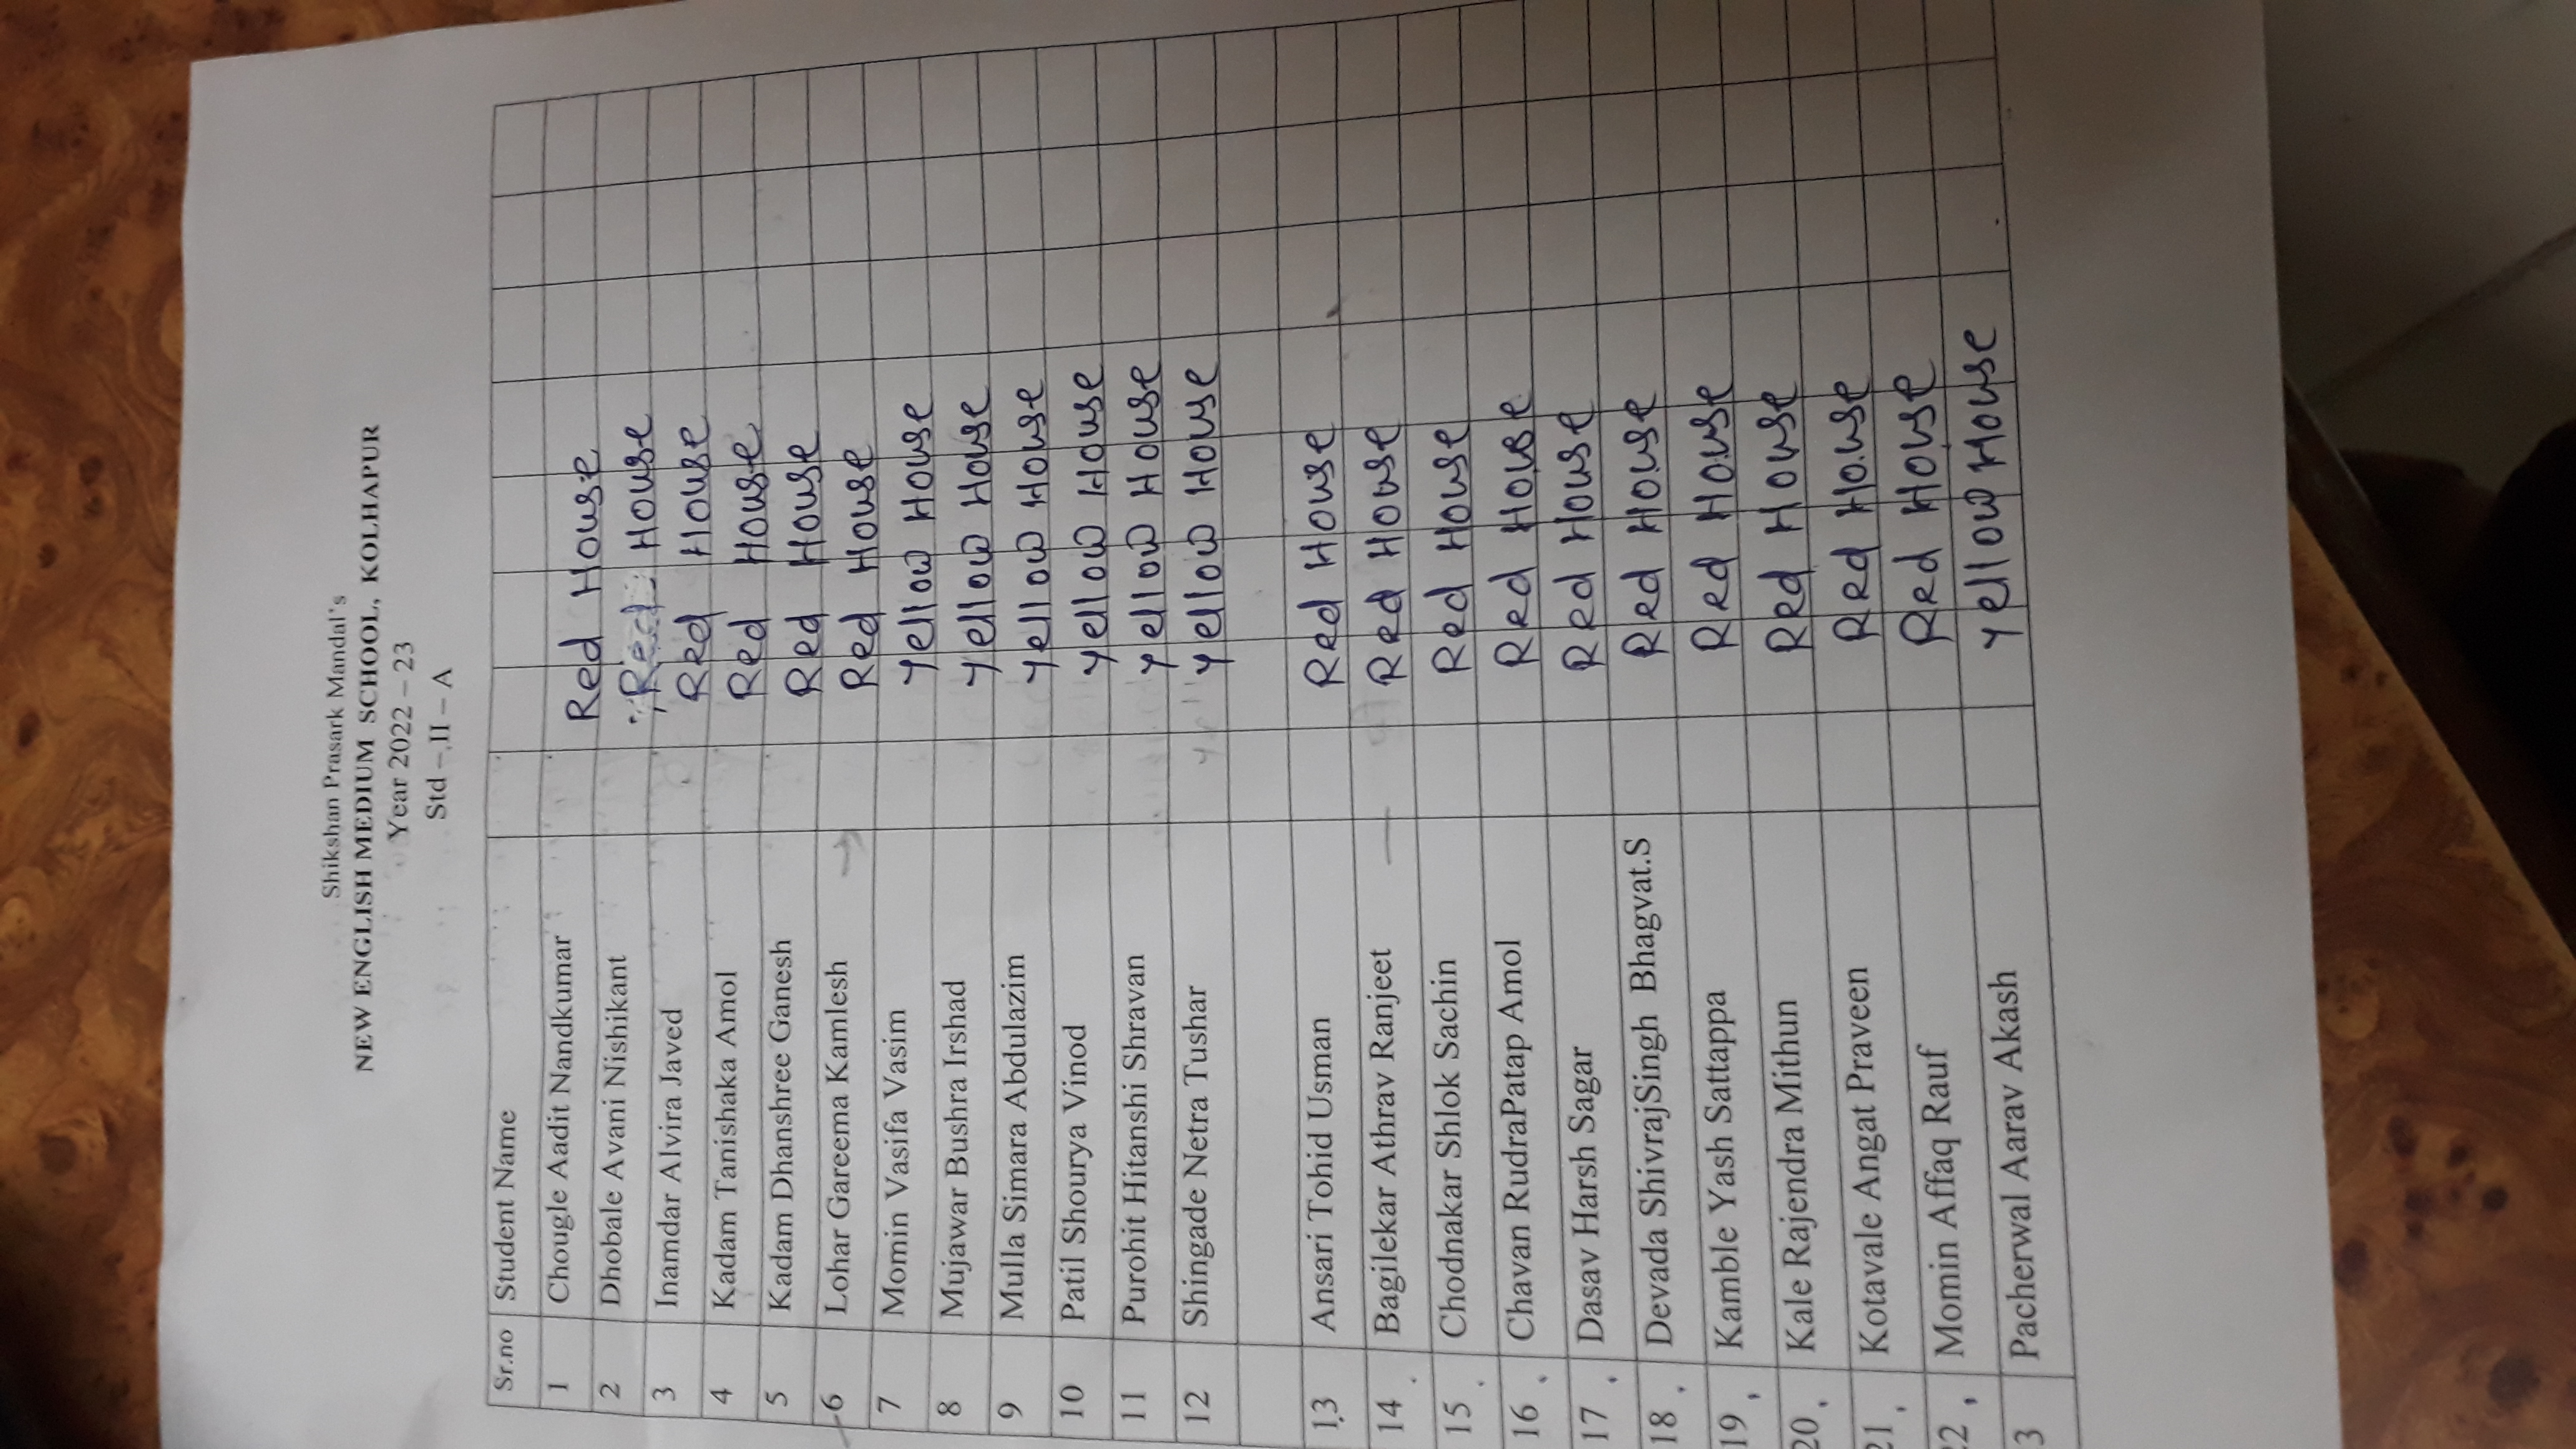 Shikshan Prasark Mandal's
NEW ENGLISH MEDIUM SCHOOL, KOLHAPUR
Year 2022 – 23
Std – II – A
Sr.no Student Name
1 Chougle Aadit Nandkumar Red House
2 Dhobale Avani Nishikant Red House
3 Inamdar Alvira Javed Red House
4 Kadam Tanishaka Amol Red House
5 Kadam Dhanshree Ganesh Red House
6 Lohar Gareema Kamlesh Red House
7 Momin Vasifa Vasim Yellow House
8 Mujawar Bushra Irshad Yellow House
9 Mulla Simara Abdulazim Yellow House
10 Patil Shourya Vinod Yellow House
11 Purohit Hitanshi Shravan Yellow House
12 Shingade Netra Tushar Yellow House
13 Ansari Tohid Usman Red House
14 Bagilekar Athrav Ranjeet Red House
15 Chodnakar Shlok Sachin Red House
16 Chavan RudraPatap Amol Red House
17 Dasav Harsh Sagar Red House
18 Devada ShivrajSingh Bhagvat.S Red House
19 Kamble Yash Sattappa Red House
20 Kale Rajendra Mithun Red House
21 Kotavale Angat Praveen Red House
22 Momin Affaq Rauf Red House
3 Pacherwal Aarav Akash Yellow House